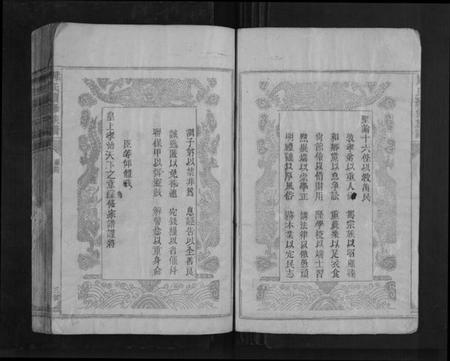 聖諭十六條以教萬民
敦孝弟以重人倫 篤宗族以昭雍睦
和鄉黨以息爭訟 重農桑以足衣食
尚節儉以惜財用 隆學校以端士習
黜異端以崇學正 講法律以儆愚頑
明禮讓以厚風俗 務本業以定民志
訓子弟以禁非為 息誣告以全善良
誡匿逃以免株連 完錢糧以省催科
聯保甲以弭盜賊 解讐忿以重身命
臣等仰體我
皇上孝治天下之意